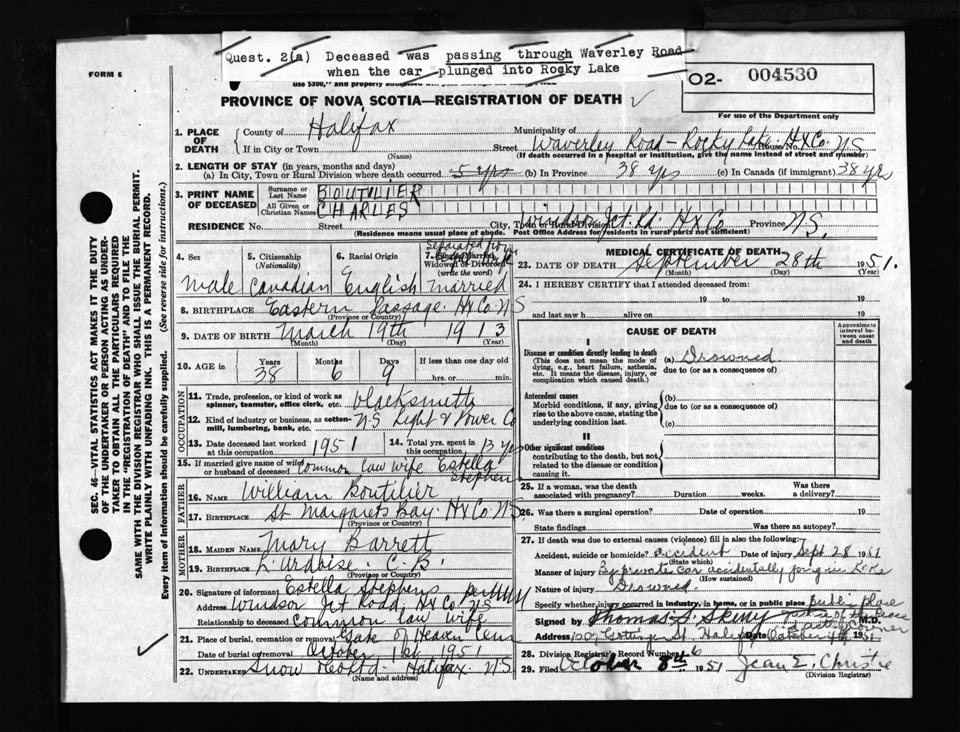 Quest. 2(a) Deceased was passing through Waverley Road
when the car plunged into Rocky Lake
FORM 6
O2- 004530
use $300, and property
PROVINCE OF NOVA SCOTIA—REGISTRATION OF DEATH
For use of the Department only
1. PLACE OF DEATH
County of Halifax
Municipality of
If in City or Town
(Name)
Street Waverley Road - Rocky Lake House No. Hx Co. NS
(If death occurred in a hospital or institution, give the name instead of street and number)
2. LENGTH OF STAY (in years, months and days)
(a) In City, Town or Rural Division where death occurred 5 yrs (b) In Province 38 yrs (c) In Canada (if immigrant) 38 yrs
3. PRINT NAME OF DECEASED
Surname or Last Name BOUTILIER
All Given or Christian Names CHARLES
RESIDENCE No. Street City, Town or Rural Division Windsor Jct. Rd. Hx Co Province N.S.
(Residence means usual place of abode. Post Office Address for residents in rural parts not sufficient)
4. Sex
male
5. Citizenship
(Nationality)
Canadian
6. Racial Origin
English
Separated from
7. Single, Married
Widowed or Divorced
(write the word)
married
8. BIRTHPLACE Eastern Passage Hx Co NS
(Province or Country)
9. DATE OF BIRTH March 19th 1913
(Month) (Day)
10. AGE in Years 38 Months 6 Days 9 If less than one day old
hrs. or min.
OCCUPATION
11. Trade, profession, or kind of work as
spinner, teamster, office clerk, etc. blacksmith
12. Kind of industry or business, as cotton-
mill, lumbering, bank, etc. NS Light & Power Co
13. Date deceased last worked
at this occupation 1951
14. Total yrs. spent in
this occupation 13 yrs
15. If married give name of wife
or husband of deceased Common law wife Estella Stephen
FATHER
16. NAME William Boutilier
17. BIRTHPLACE St Margarets Bay. Hx Co. N.S.
(Province or Country)
MOTHER
18. MAIDEN NAME Mary Barrett
19. BIRTHPLACE L'Ardoise. C.B.
(Province or Country)
20. Signature of informant Estella Stephens
Address Windsor Jct Road, Hx Co. NS
Relationship to deceased common law wife
21. Place of burial, cremation or removal Gate of Heaven Cem
Date of burial or removal October 1st 1951
22. UNDERTAKER Snow & Co Ltd - Halifax. N.S.
(Name and address)
MEDICAL CERTIFICATE OF DEATH
23. DATE OF DEATH September 28th 1951.
(Month) (Day) (Year)
24. I HEREBY CERTIFY that I attended deceased from:
19 to 19
and last saw h alive on 19
CAUSE OF DEATH
Approximate interval between onset and death
I
Disease or condition directly leading to death
(This does not mean the mode of
dying, e.g., heart failure, asthenia,
etc. It means the disease, injury, or
complication which caused death.)
(a) Drowned
due to (or as a consequence of)
Antecedent causes
Morbid conditions, if any, giving
rise to the above cause, stating the
underlying condition last.
(b)
due to (or as a consequence of)
(c)
II
Other significant conditions
contributing to the death, but not
related to the disease or condition
causing it.
25. If a woman, was the death
associated with pregnancy? Duration weeks. Was there
a delivery?
26. Was there a surgical operation? Date of operation 19
State findings Was there an autopsy?
27. If death was due to external causes (violence) fill in also the following:
Accident, suicide or homicide? accident Date of injury Sept 28 1951
(State which)
Manner of injury By private car accidentally going in lake
(How sustained)
Nature of injury Drowned.
Specify whether injury occurred in industry, in home, or in public place Public place
Signed by Thomas S. M.D.
Address Gottingen St. Halifax Date October 4th 1951
28. Division Registrar's Record Number 6
29. Filed October 8th 1951 Jean E. Christie
(Division Registrar)
SEC. 46—VITAL STATISTICS ACT MAKES IT THE DUTY
OF THE UNDERTAKER OR PERSON ACTING AS UNDER-
TAKER TO OBTAIN ALL THE PARTICULARS REQUIRED
IN THE "REGISTRATION OF DEATH" AND TO FILE THE
SAME WITH THE DIVISION REGISTRAR WHO SHALL ISSUE THE BURIAL PERMIT.
WRITE PLAINLY WITH UNFADING INK. THIS IS A PERMANENT RECORD.
Every item of information should be carefully supplied. (See reverse side for instructions.)